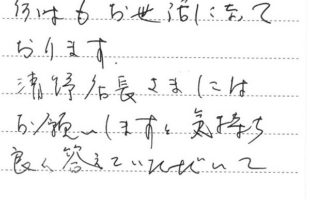 何時もお世話になって
おります。
清野店長さまには
お願いしますと気持ち
良く答えていただいて